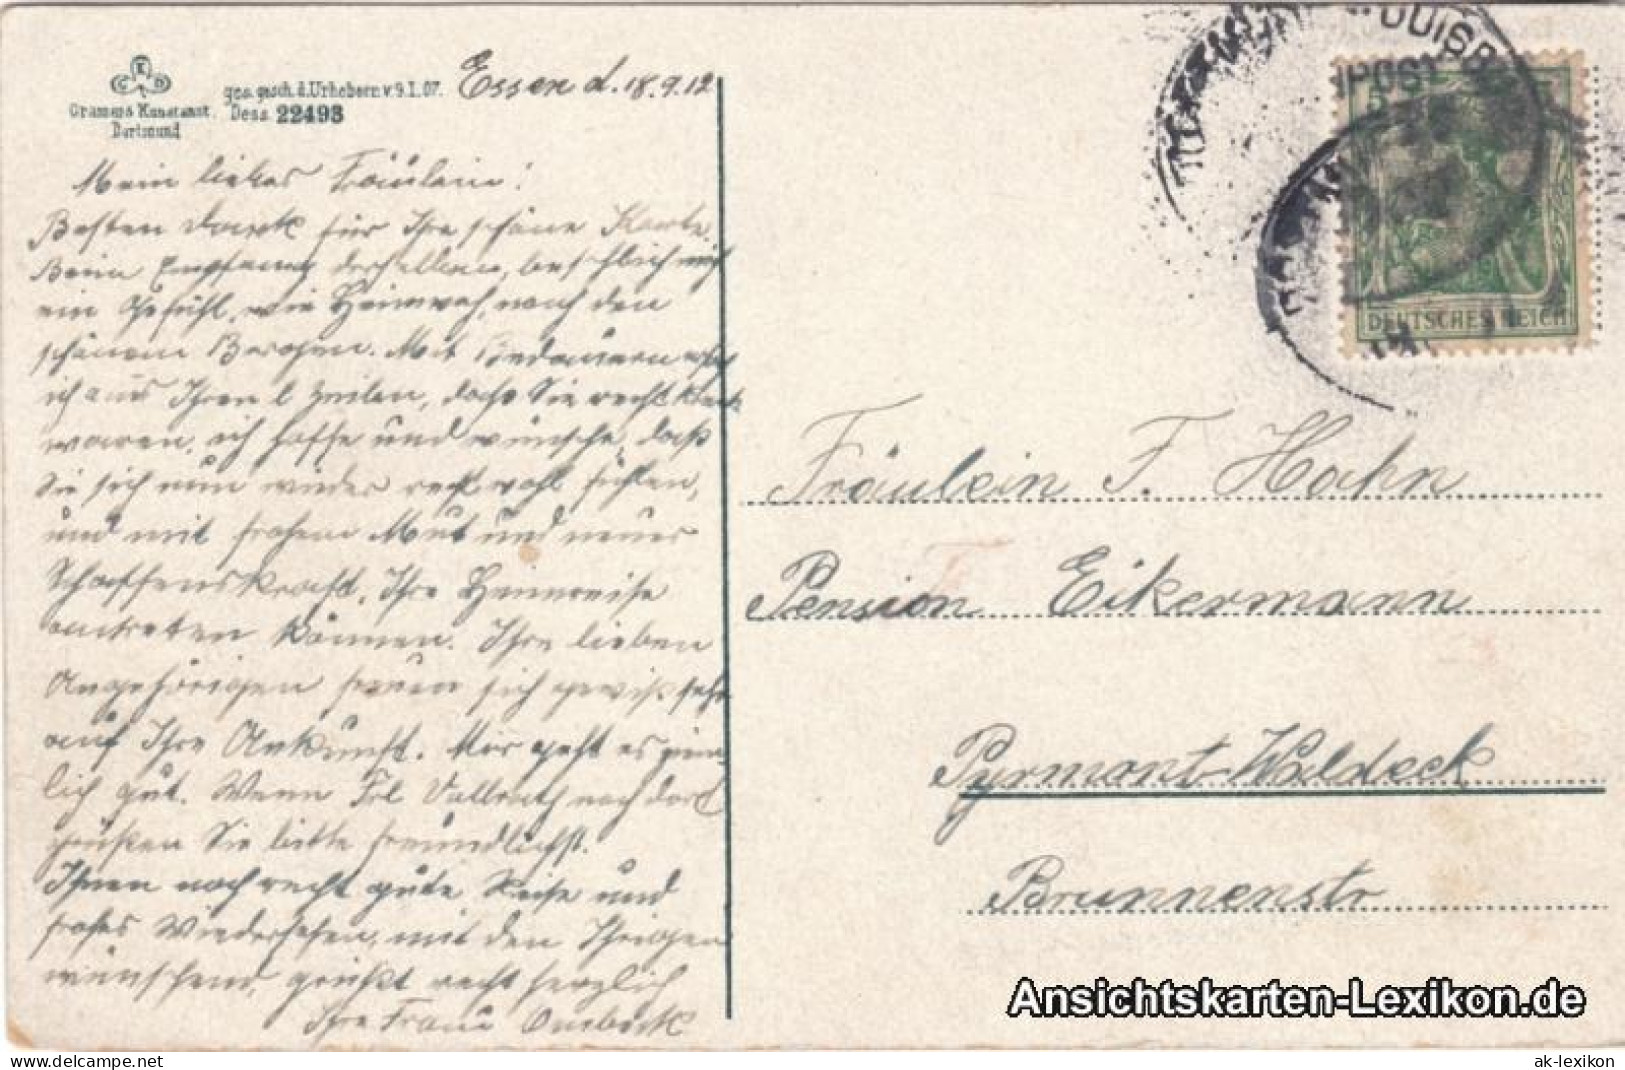 Essen d. 18.9.12
ges. gesch. d. Urhebern v. 9.I.07.
Dess 22493
Dortmund
Mein liebes Fräulein!
Besten Dank für Ihre schöne Karte.
Beim Empfang derselben, beschlich mich
ein Gefühl, wie Heimweh, nach den
schönen Bergen. Mit Bedauern
ich aus Ihren l Zeilen, dass Sie recht krank
waren, ich hoffe und wünsche, daß
Sie sich nun wieder recht wohl fühlen,
und mit frohem Mut und neuer
Schaffenskraft, Ihre Heimreise
antreten können. Ihre lieben
Angehörigen freuen sich gewiß sehr
auf Ihre Ankunft. Mir geht es ziem-
lich gut. Wenn Frl Vollrath noch dort
grüßen Sie bitte freundlichst.
Ihnen noch recht gute Reise und
frohes Wiedersehen, mit den Ihrigen
wünschend, grüßt recht herzlich
Ihre Frau
DUISB
DEUTSCHES REICH
Fräulein F. Hahn
Pension Eikermann
Pyrmont-Waldeck
Brunnenstr
Ansichtskarten-Lexikon.de
ak-lexikon